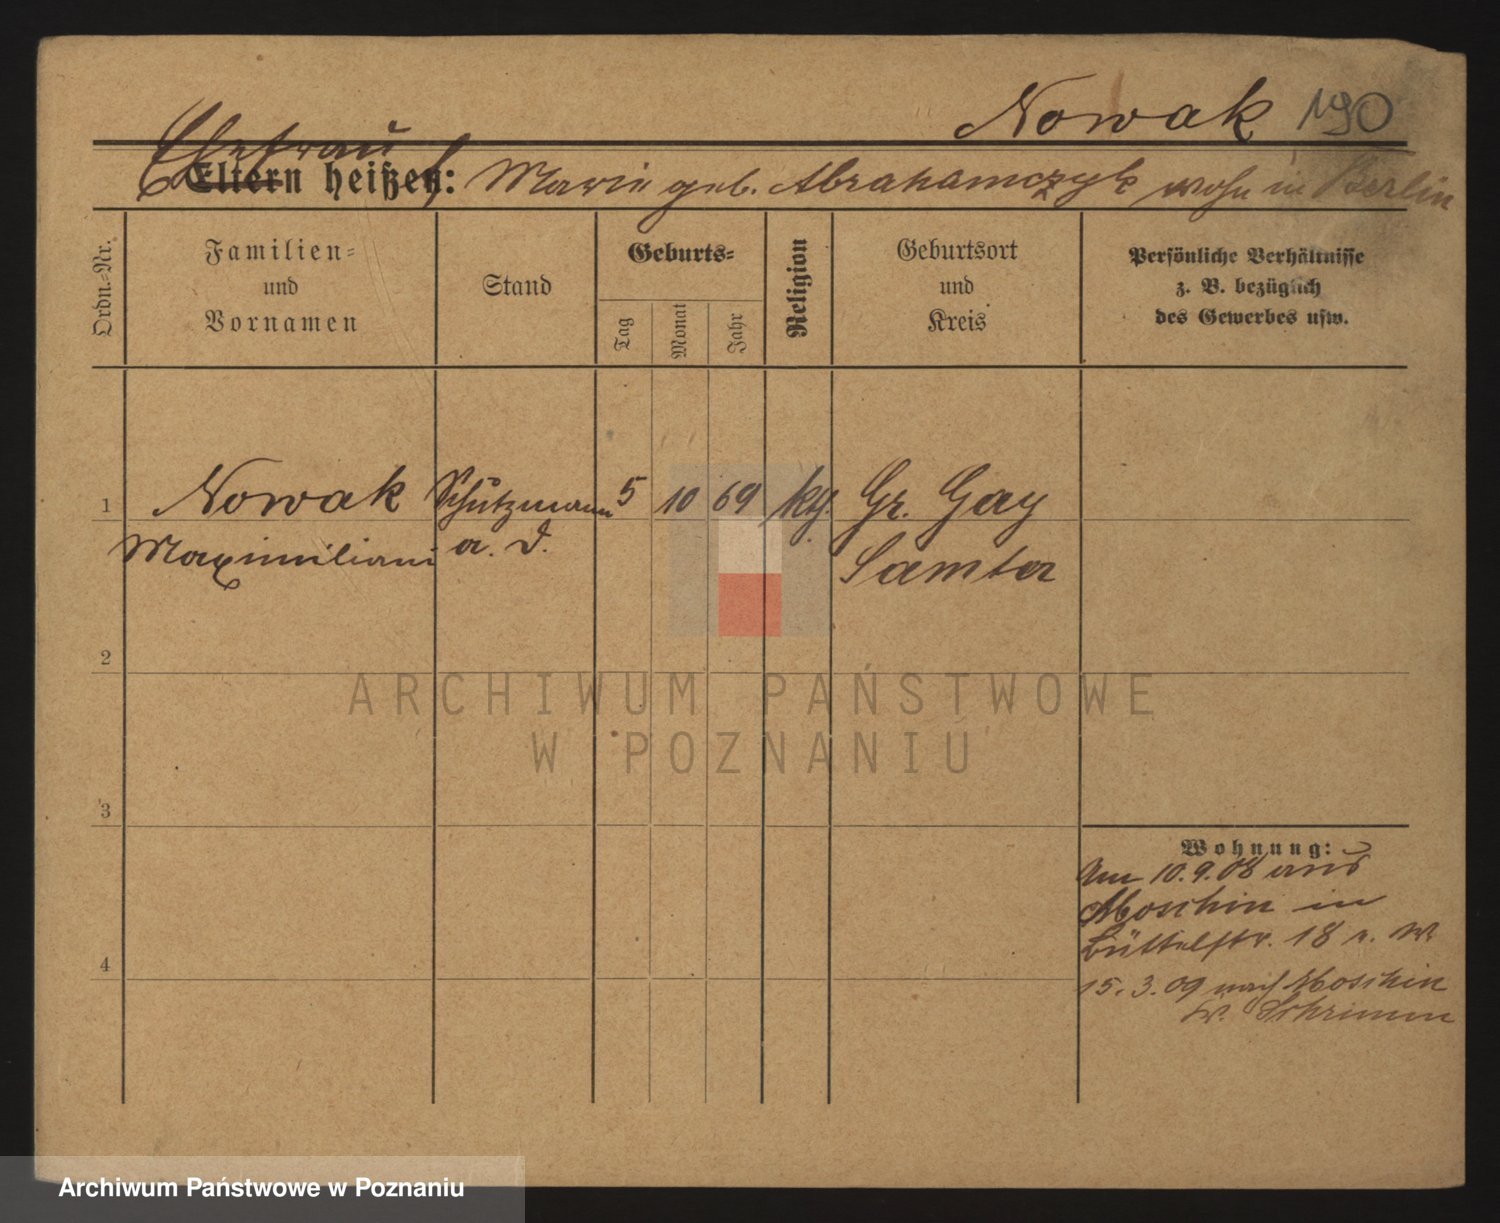 Nowak 190
Ehefrau
Eltern heißen: Marie geb. Abrahamczyk wohn in Berlin
Ordn.-Nr.
Familien-
und
Vornamen
Stand
Geburts-
Tag
Monat
Jahr
Religion
Geburtsort
und
Kreis
Persönliche Verhältnisse
z. B. bezüglich
des Gewerbes usw.
1 Nowak Schutzmann 5 10 69 kth. Gr. Gay
Maximilian a. D. Samter
2
3
4
Wohnung:
Am 10.9.08 aus
Moschin in
Büttelstr. 18
15.3.09 nach Moschin
Schrimm
ARCHIWUM PAŃSTWOWE
W POZNANIU
Archiwum Państwowe w Poznaniu